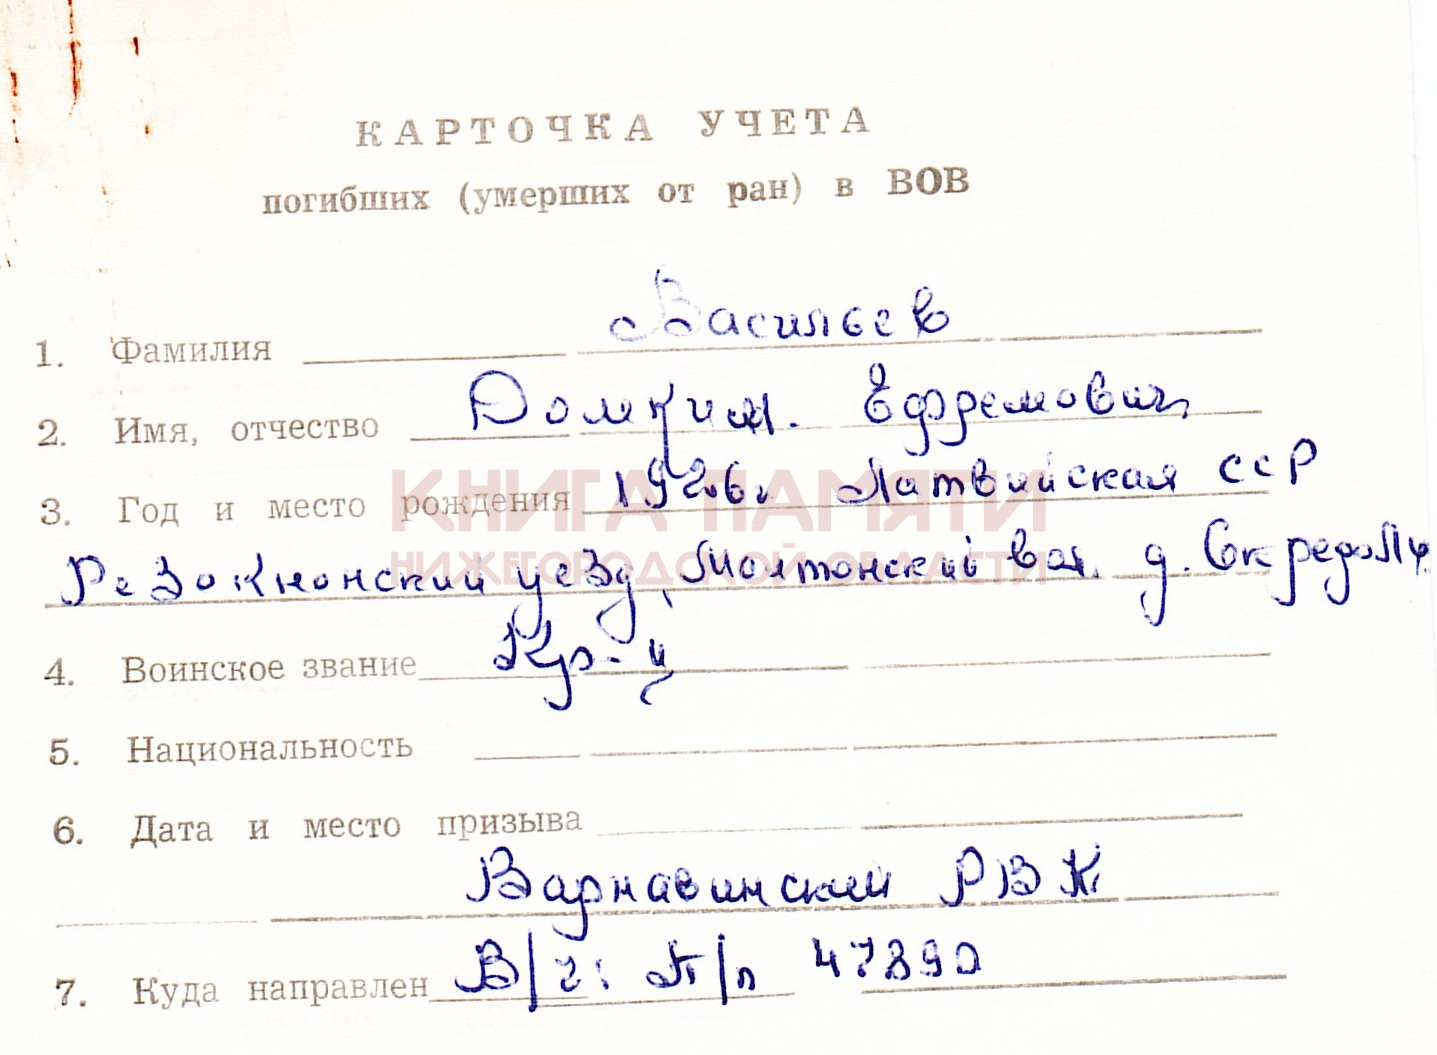 КАРТОЧКА УЧЕТА
погибших (умерших от ран) в ВОВ
1. Фамилия Васильев
2. Имя, отчество Домким. Ефремович
3. Год и место рождения 1926г Латвийская ССР
Резокнонский уезд, Молтонский вол. д.
4. Воинское звание Кр-ц
5. Национальность
6. Дата и место призыва
Варнавинский РВК
7. Куда направлен В/ч: П/п 47390
КНИГА ПАМЯТИ
НИЖЕГОРОДСКОЙ ОБЛАСТИ